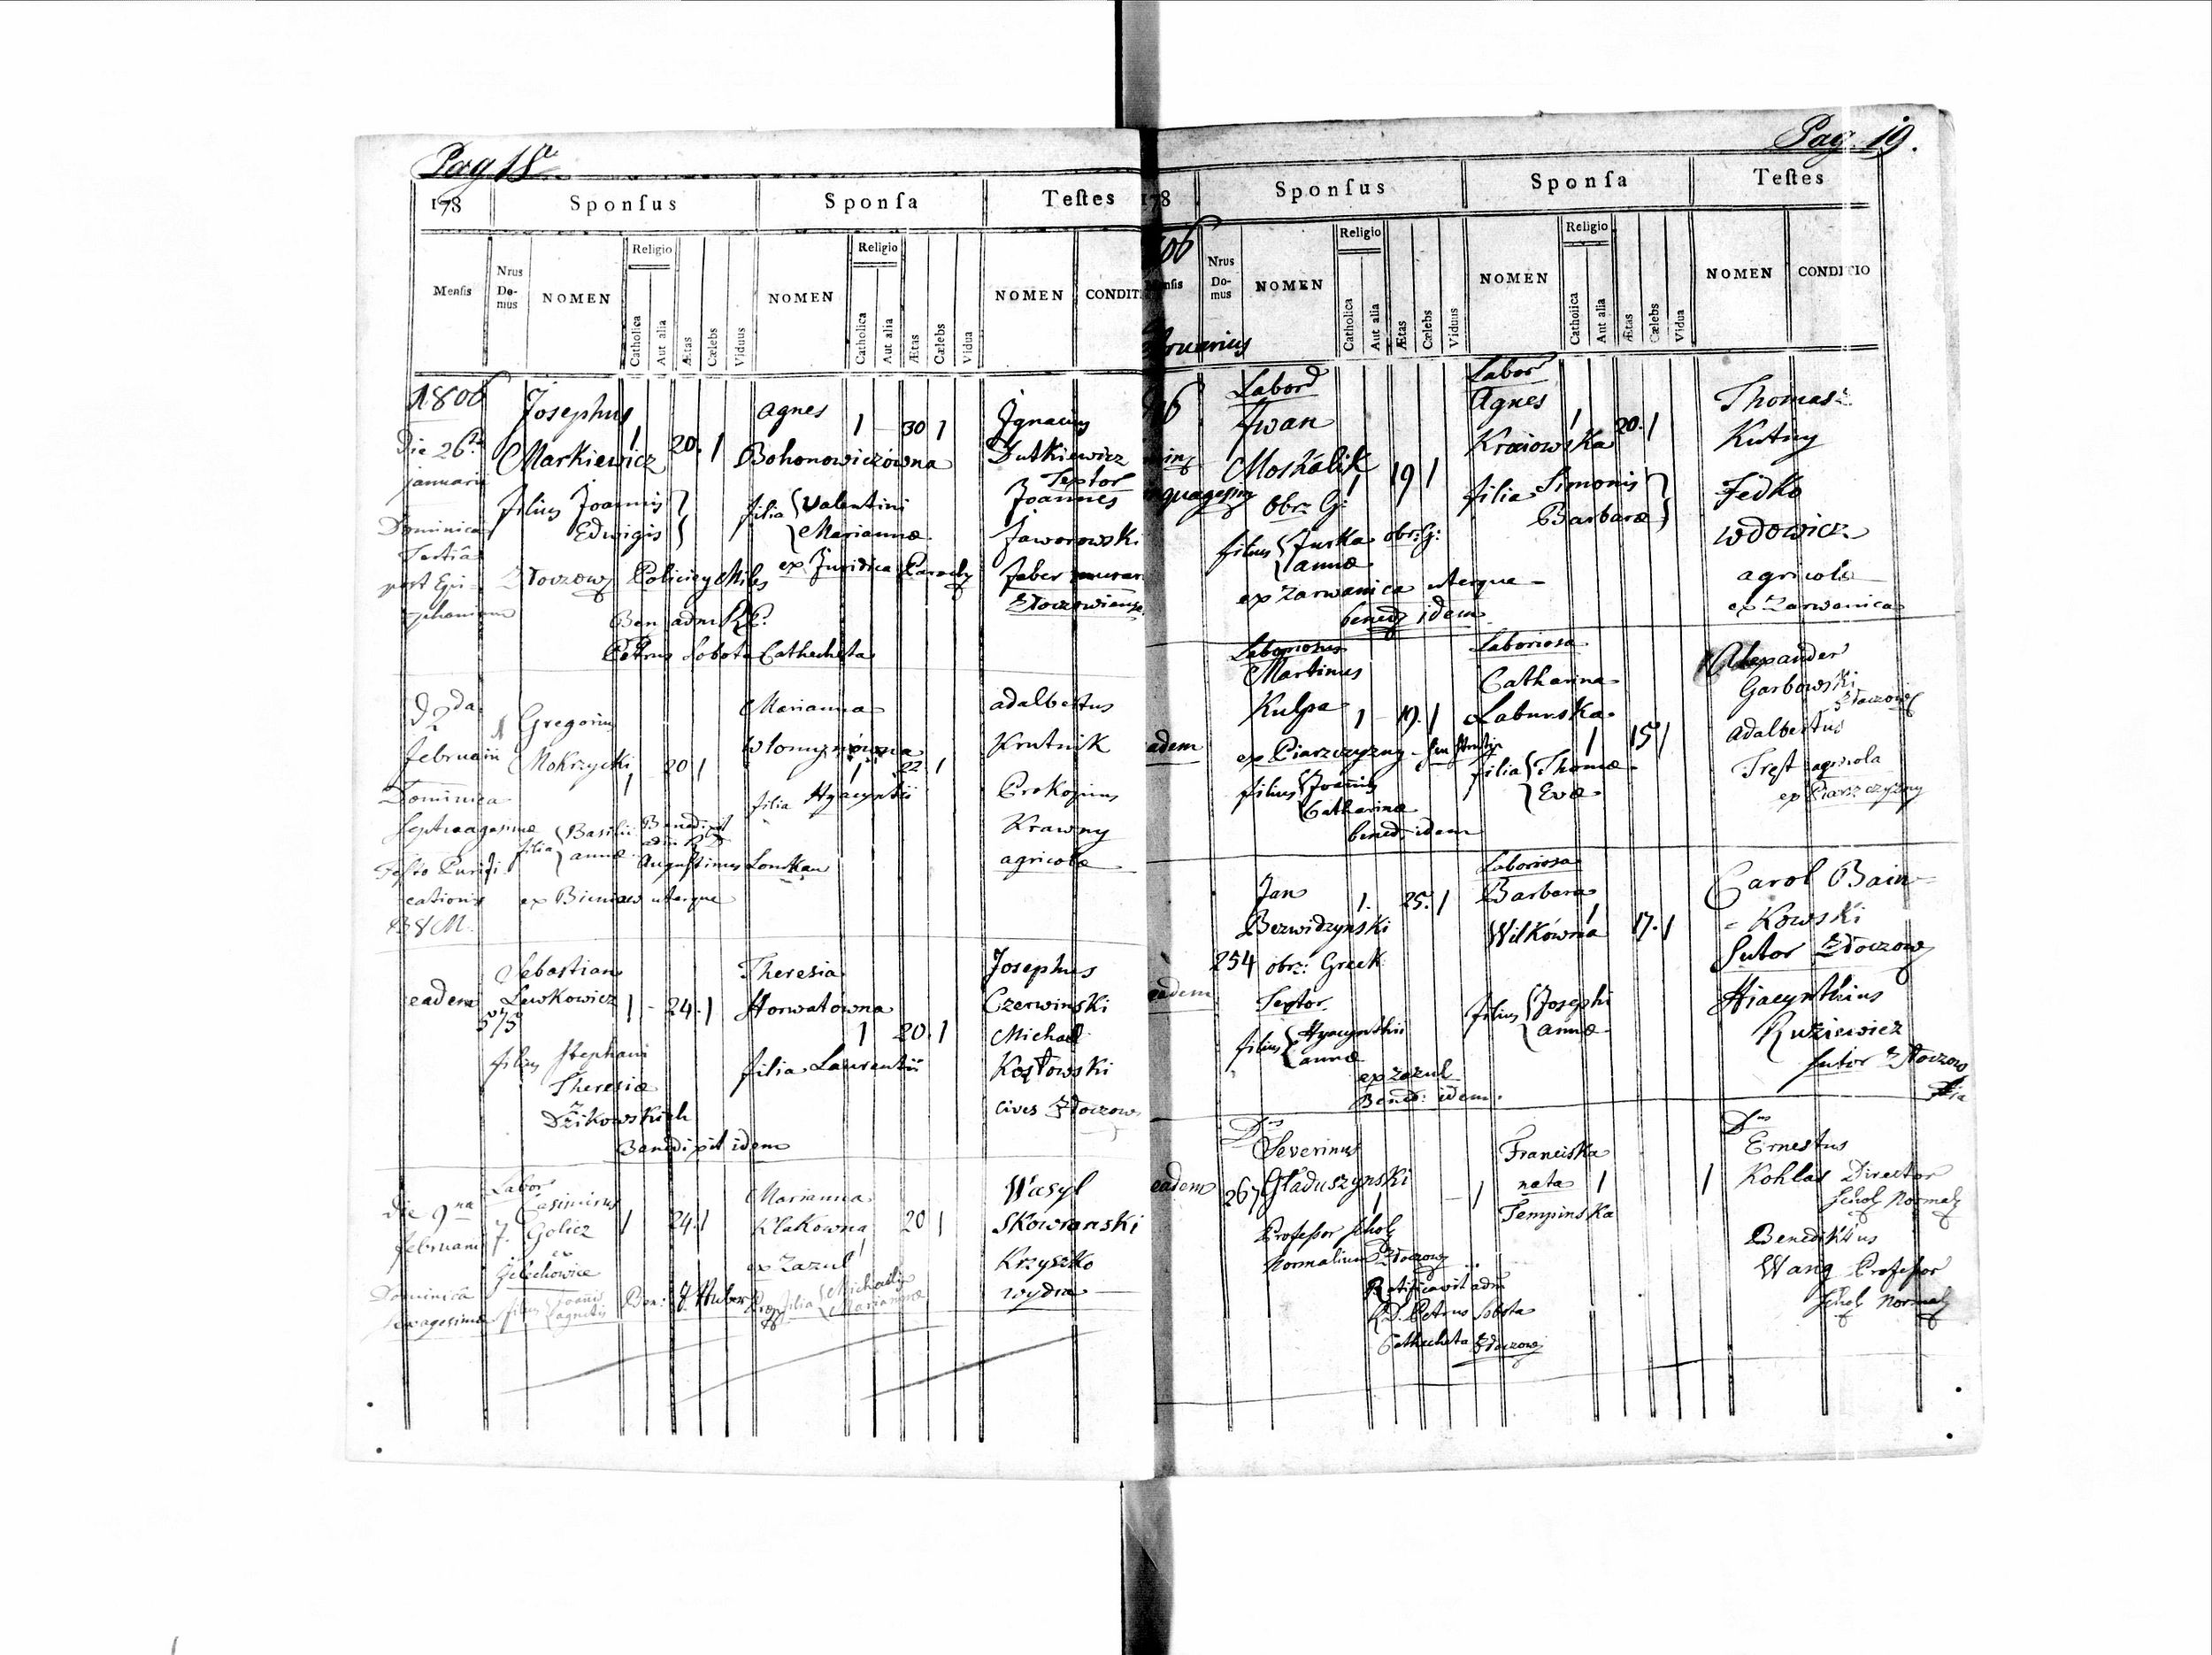 Pag 18
178
Sponſus
Sponſa
Teſtes
Menſis
Nrus Do-mus
NOMEN
Religio
Catholica
Aut alia
Ætas
Cœlebs
Viduus
NOMEN
Religio
Catholica
Aut alia
Ætas
Cœlebs
Vidua
NOMEN
1806
Die 26ta
januarii
Dominica
Tertiâ
post Epi-
phaniam
Josephus
Markiewicz 1 20. 1
filius Joannis
Edwigis
Złoczow Policiey Miles
Agnes 1 30 1
Bohonowiczówna
filia Valentini
Mariannæ
ex Juridica
Ben adm
Petrus Sobota Cathecheta
Ignacius
Dutkiewicz
Textor
Joannes
Jaworowski
faber
2da
februarii
Dominica
Septuagesimæ
Festo Purifi
cationis
BVM.
Gregorius
Mokrzycki 1 20 1
filia Basilii
annæ
ex Bieniaw uterque
Marianna
1 22 1
filia Hyacyntii
Augustinus
adalbertus
Krutnik
Prokopius
Krawny
agricolæ
eadem
575
Sebastian
Lewkowicz 1 - 24. 1
filius Stephani
Theresiæ
Dzikowskich
Theresia
Horwatówna
1 20. 1
filia Laurentii
Benedixit idem
Josephus
Czerwinski
Michael
Kozłowski
Cives Złoczow
Die 9na
februarii
Dominica
7.
Labor
Casimirus
Golicz 1 24. 1
ex
filius Joannis
agnetis
Marianna
Klakówna 20 1
ex Zazul 1
filia Michaelis
Mariannæ
Ben: J Huber
Wasyl
Skowronski
Krzyszko
wydra
Pag. 19.
178
Sponſus
Sponſa
Teſtes
Nrus Do-mus
NOMEN
Religio
Catholica
Aut alia
Ætas
Cœlebs
Viduus
NOMEN
Religio
Catholica
Aut alia
Ætas
Cœlebs
Vidua
NOMEN
CONDITIO
Labor
Iwan
Moskalik 1 19 1
Obr: G:
filius Jurka obr: G:
annæ
ex Zarwanica uterque
bened idem
Labor
Agnes 1 20. 1
Kraiowska
filia Simonis
Barbaræ
Thomasz
Kutny
Fedko
Wdowicz
agricolæ
ex Zarwanica
eadem
Laboriosus
Martinus
Kulpa 1 - 19. 1
ex Piarzczyzny
filius Joannis
Catharinæ
bened: idem
Laboriosa
Catharina
Laburska
1 15 1
filia Thomæ
Evæ
Alexander
Garbowski
Adalbertus
Trest agricola
ex Piarszczyzny
eadem
254
Jan 1. 25. 1
Bezwidzynski
obrz: Greek
Textor
filius Hyacynthii
annæ
ex Zazul
Bened: idem.
Laboriosa
Barbara
Wilkówna 1 17. 1
filius Josephi
annæ
Carol Bain=
=kowski
Sutor Złoczow
Hiacynthius
Ruziewicz
Sutor Złoczow
eadem
267
Dnus
Severinus
Gładuszynski
1 - 1
Professor Schol
Normalium Złoczow
Ratificavit adm
R.D. Petrus Sobota
Cathecheta Złoczow
Franciska
nata 1 1
Tempinska
Dnus
Ernestus
Kohlas Director
Schol Normal
Benediktus
Wang Professor
Schol Normal